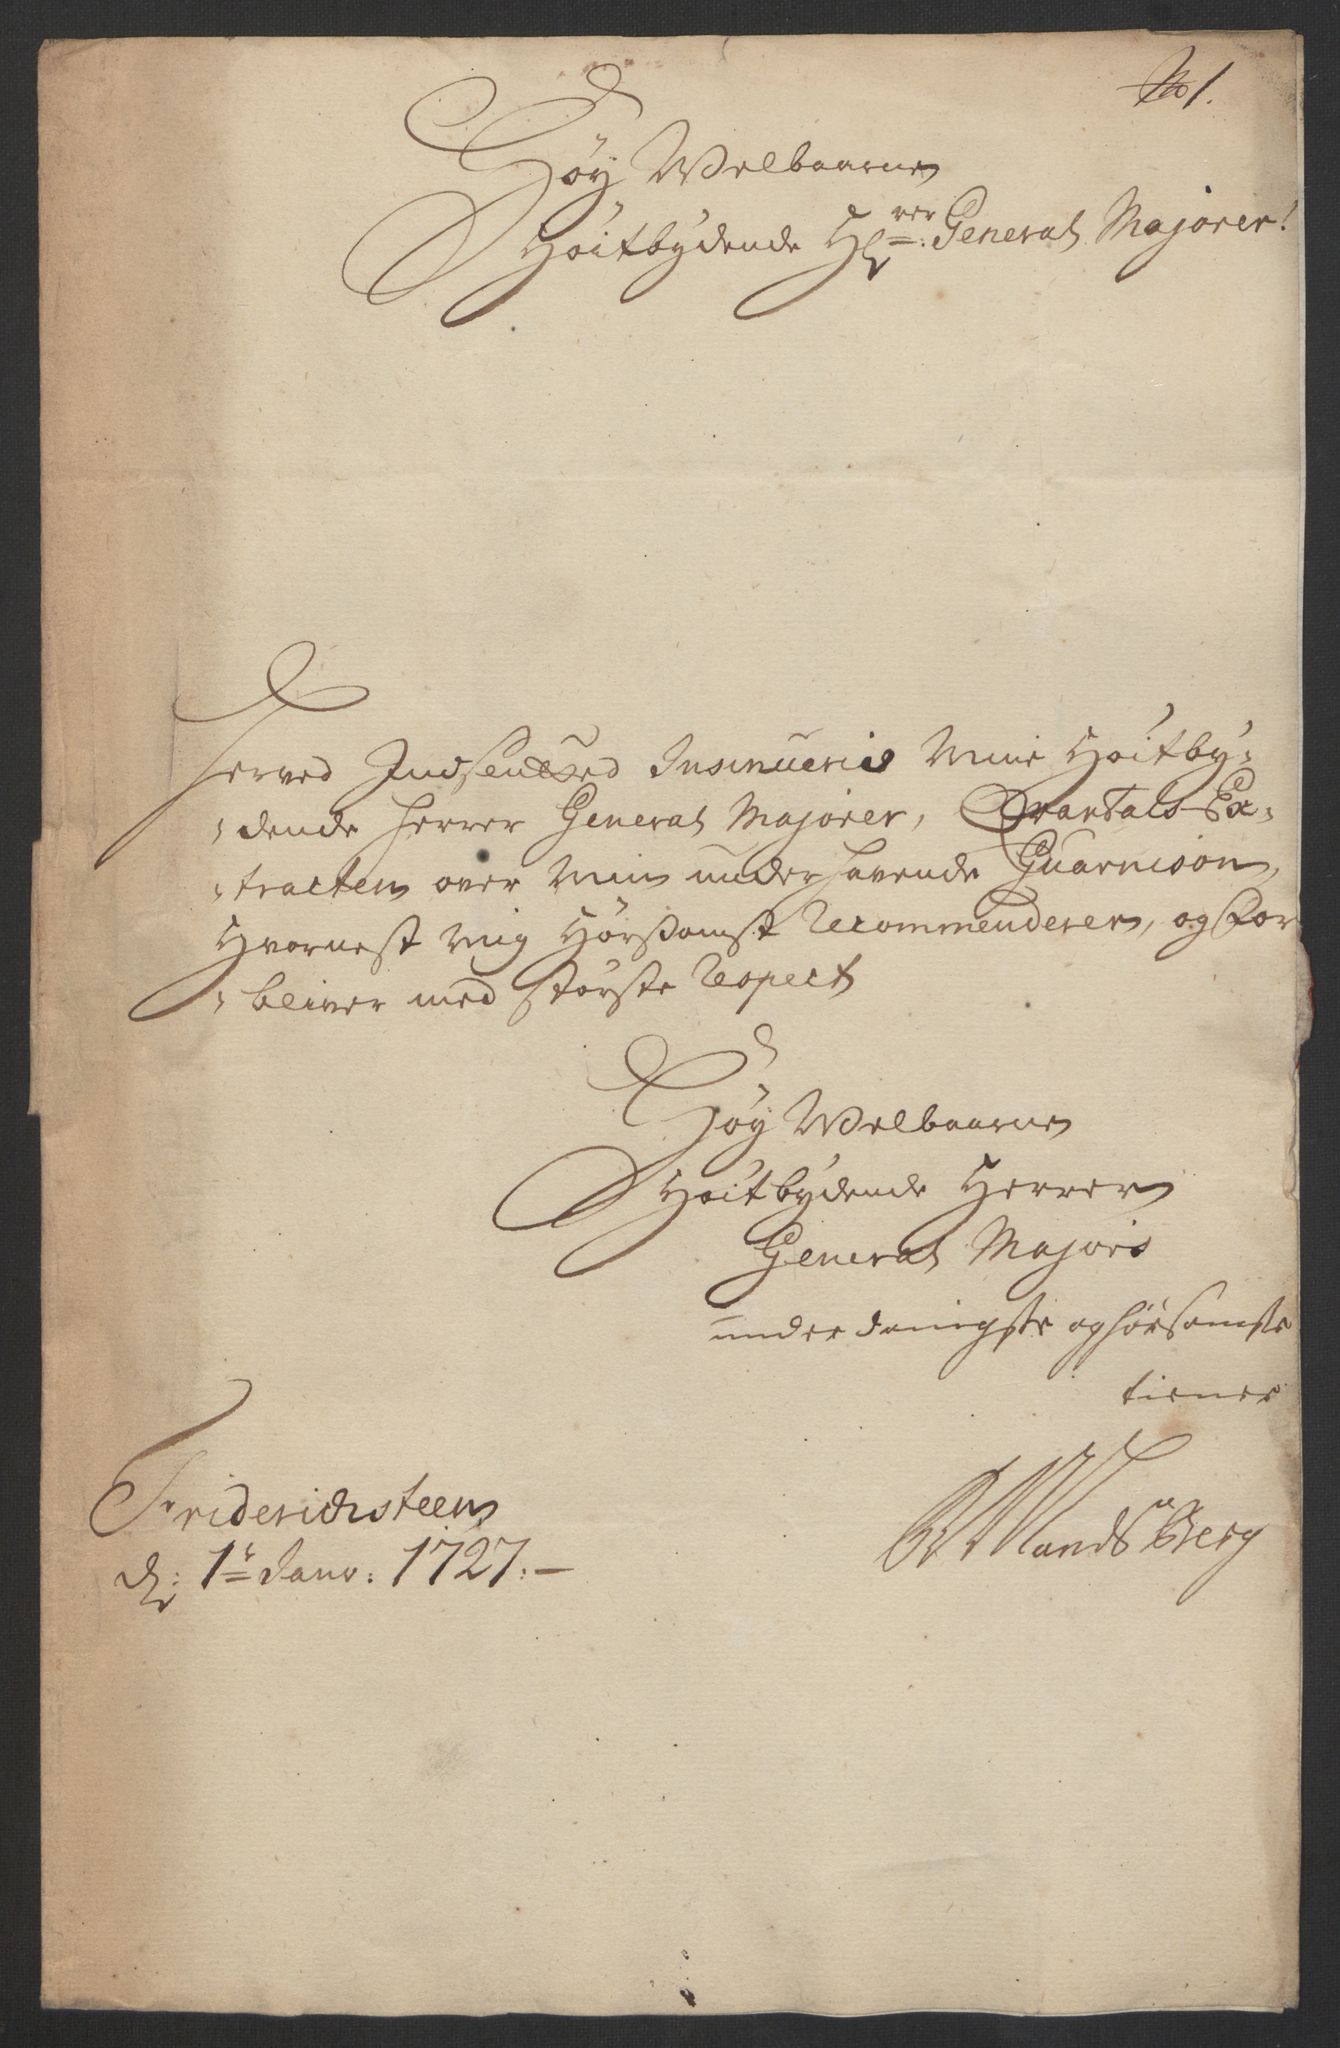 No 1.
Høy Welbaarne
Høitbydende H:rer General Majorer!
Herved Indsendted Insinueris Mine Høitby-
-dende Herrer General Majorer, Qvartals Ex-
-tracten over Min underhavende Guarnison,
Hvornest mig Hørsomst Recommenderer, og for
-bliver med största Respect
Høy Welbaarne
Høitbydende Herrer
General Majors
underdanigste og hørsomste
tiener
Friderichsteen
d: 1te Janv: 1727.
Landsberg